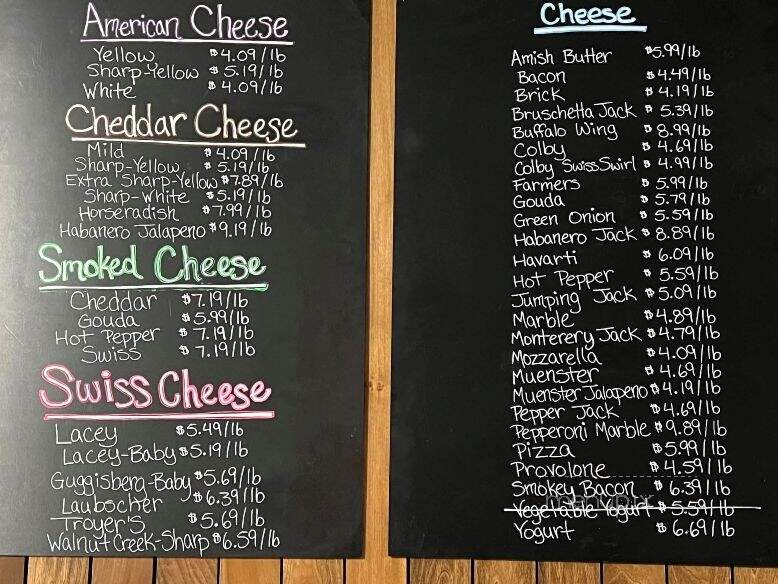 American Cheese
Yellow $4.09/lb
Sharp-Yellow $5.19/lb
White $4.09/lb
Cheddar Cheese
Mild $4.09/lb
Sharp-Yellow $5.19/lb
Extra Sharp-Yellow $7.89/lb
Sharp-White $5.19/lb
Horseradish $7.99/lb
Habanero Jalapeno $9.19/lb
Smoked Cheese
Cheddar $7.19/lb
Gouda $5.99/lb
Hot Pepper $7.19/lb
Swiss $7.19/lb
Swiss Cheese
Lacey $5.49/lb
Lacey-Baby $5.19/lb
Guggisberg-Baby $5.69/lb
Laubscher $6.39/lb
Troyer's $5.69/lb
Walnut Creek-Sharp $6.59/lb
Cheese
Amish Butter $5.99/lb
Bacon $4.49/lb
Brick $4.19/lb
Bruschetta Jack $5.39/lb
Buffalo Wing $8.99/lb
Colby $4.69/lb
Colby Swiss Swirl $4.99/lb
Farmers $5.99/lb
Gouda $5.79/lb
Green Onion $5.59/lb
Habanero Jack $8.89/lb
Havarti $6.09/lb
Hot Pepper $5.59/lb
Jumping Jack $5.09/lb
Marble $4.89/lb
Monterery Jack $4.79/lb
Mozzarella $4.09/lb
Muenster $4.69/lb
Muenster Jalapeno $4.19/lb
Pepper Jack $4.69/lb
Pepperoni Marble $9.89/lb
Pizza $5.99/lb
Provolone $4.59/lb
Smokey Bacon $6.39/lb
Vegetable Yogurt $5.59/lb
Yogurt $6.69/lb